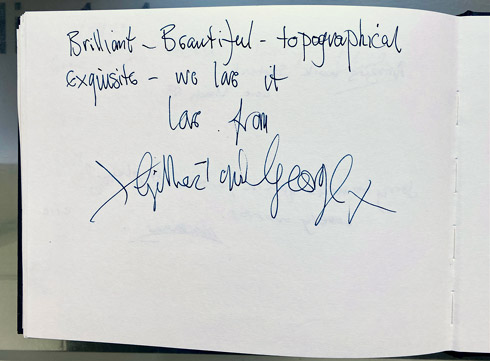 Brilliant – Beautiful – topographical
exquisite – we love it
Love from
x Gilbert and George x